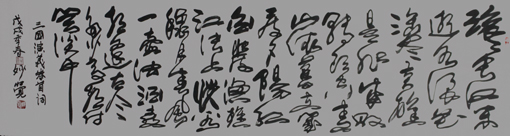 滚滚长江东
逝水浪花
淘尽英雄
是非成败
转头空青
山依旧在几
度夕阳红
白发渔樵
江渚上惯
看秋月春风
一壶浊酒喜
相逢古今
多少事都付
笑谈中
三国演义卷首词
戊戌年春